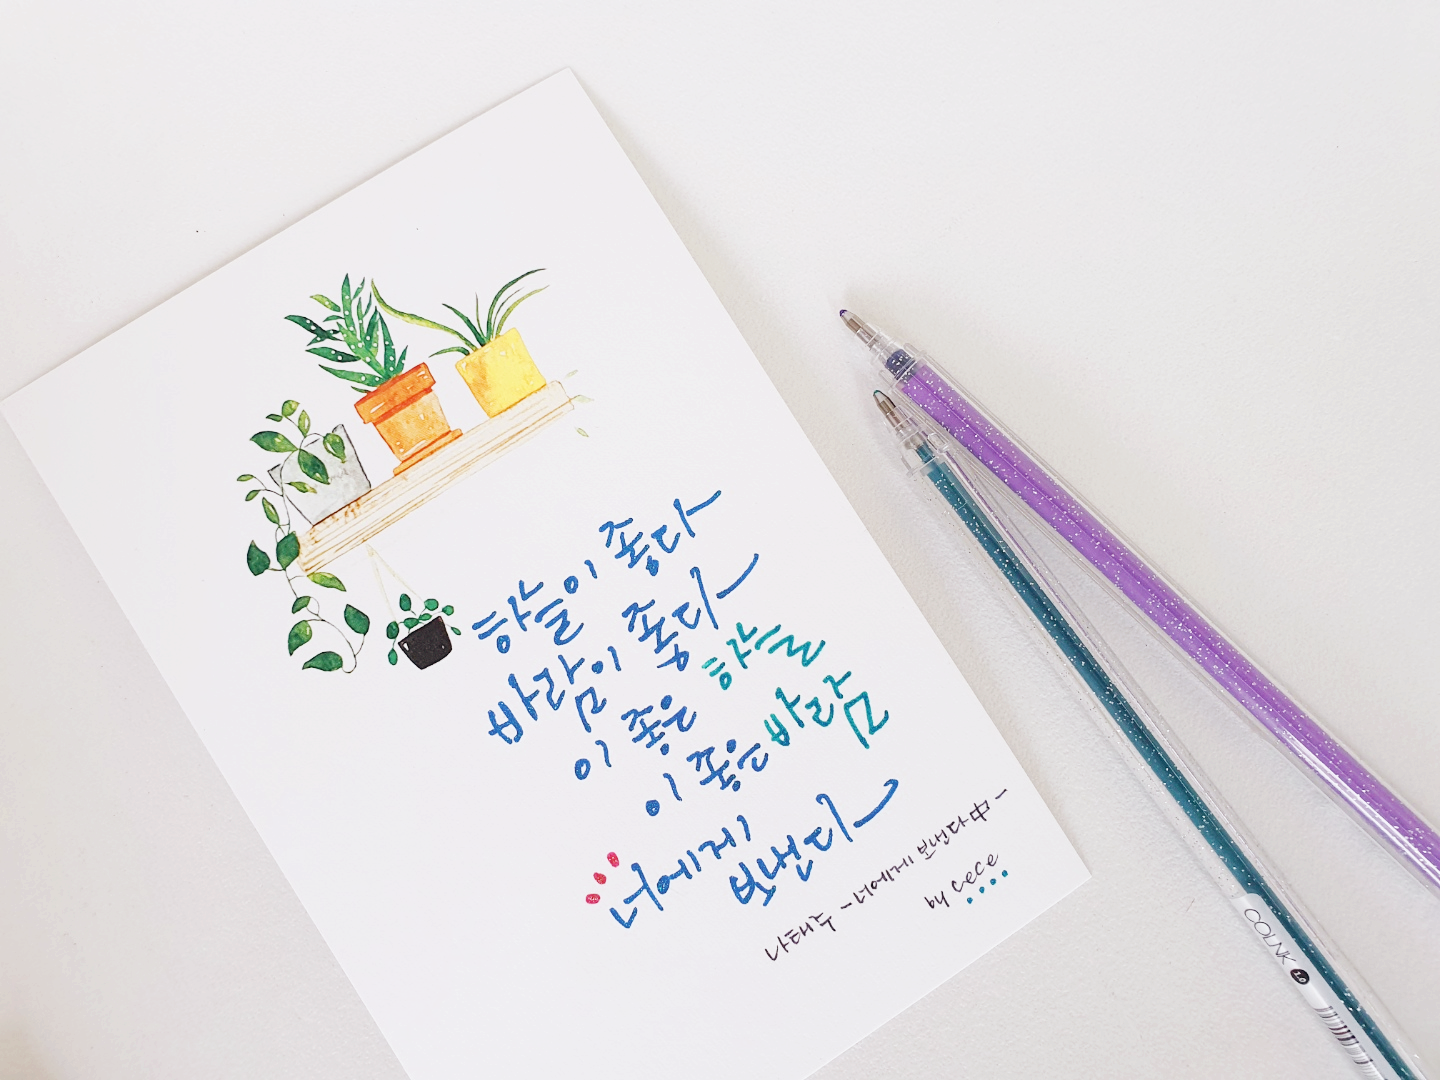 하늘이 좋다
바람이 좋다
이 좋은 하늘
이 좋은 바람
너에게
보낸다
나태주 - 너에게 보낸다 中 -
by cece
COLNK 1.0